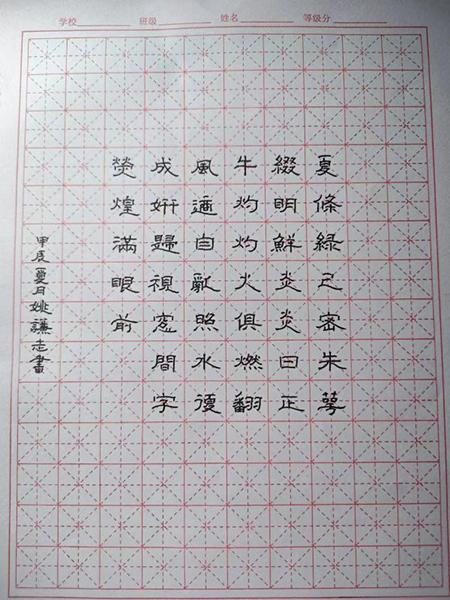 学校 班级 姓名 等级分
夏條綠已密朱萼
綴明鮮炎炎日正
牛灼灼火俱燃翻
風適自亂照水復
成妍歸視窓間字
熒煌滿眼前
甲辰夏月姚謙志書